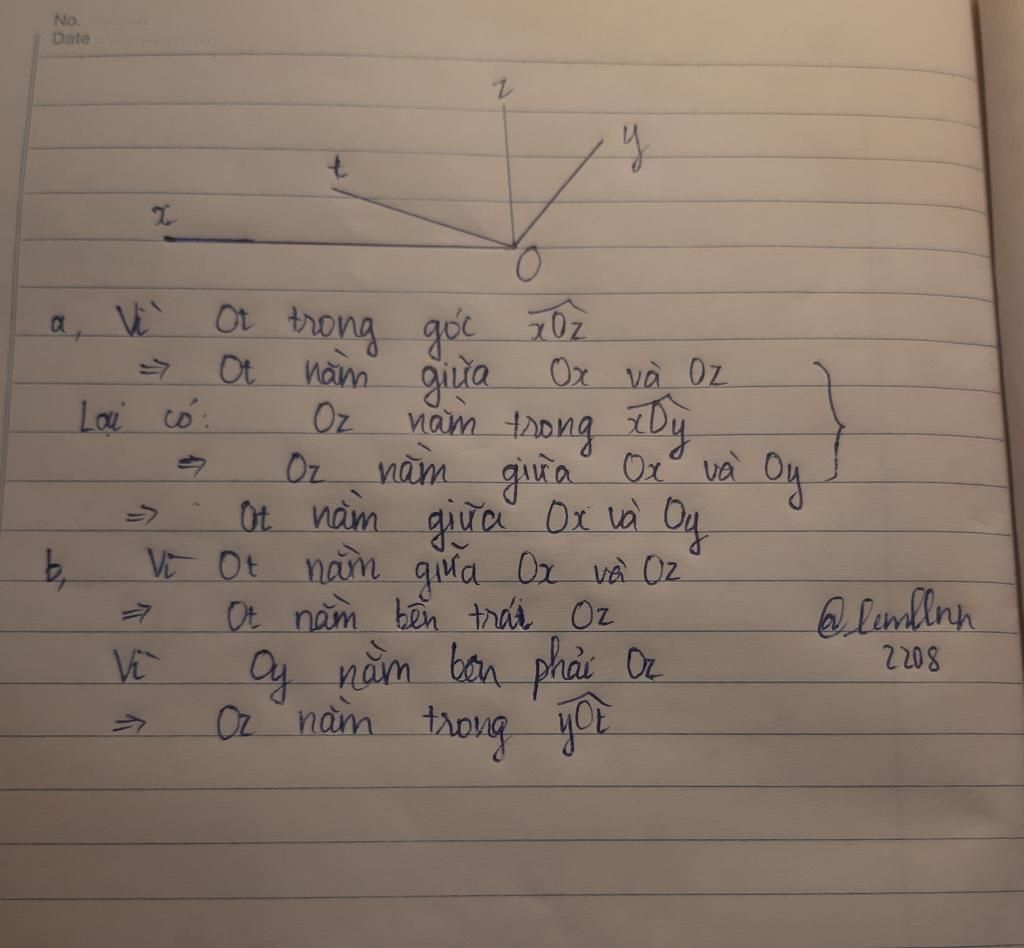 No.
Date
z
y
t
x
O
a, Vì Ot trong góc xOz
=> Ot nằm giữa Ox và Oz
Lại có: Oz nằm trong xOy
=> Oz nằm giữa Ox và Oy
=> Ot nằm giữa Ox và Oy
b, Vì Ot nằm giữa Ox và Oz
=> Ot nằm bên trái Oz
Vì Oy nằm bên phải Oz
=> Oz nằm trong yOt
2208